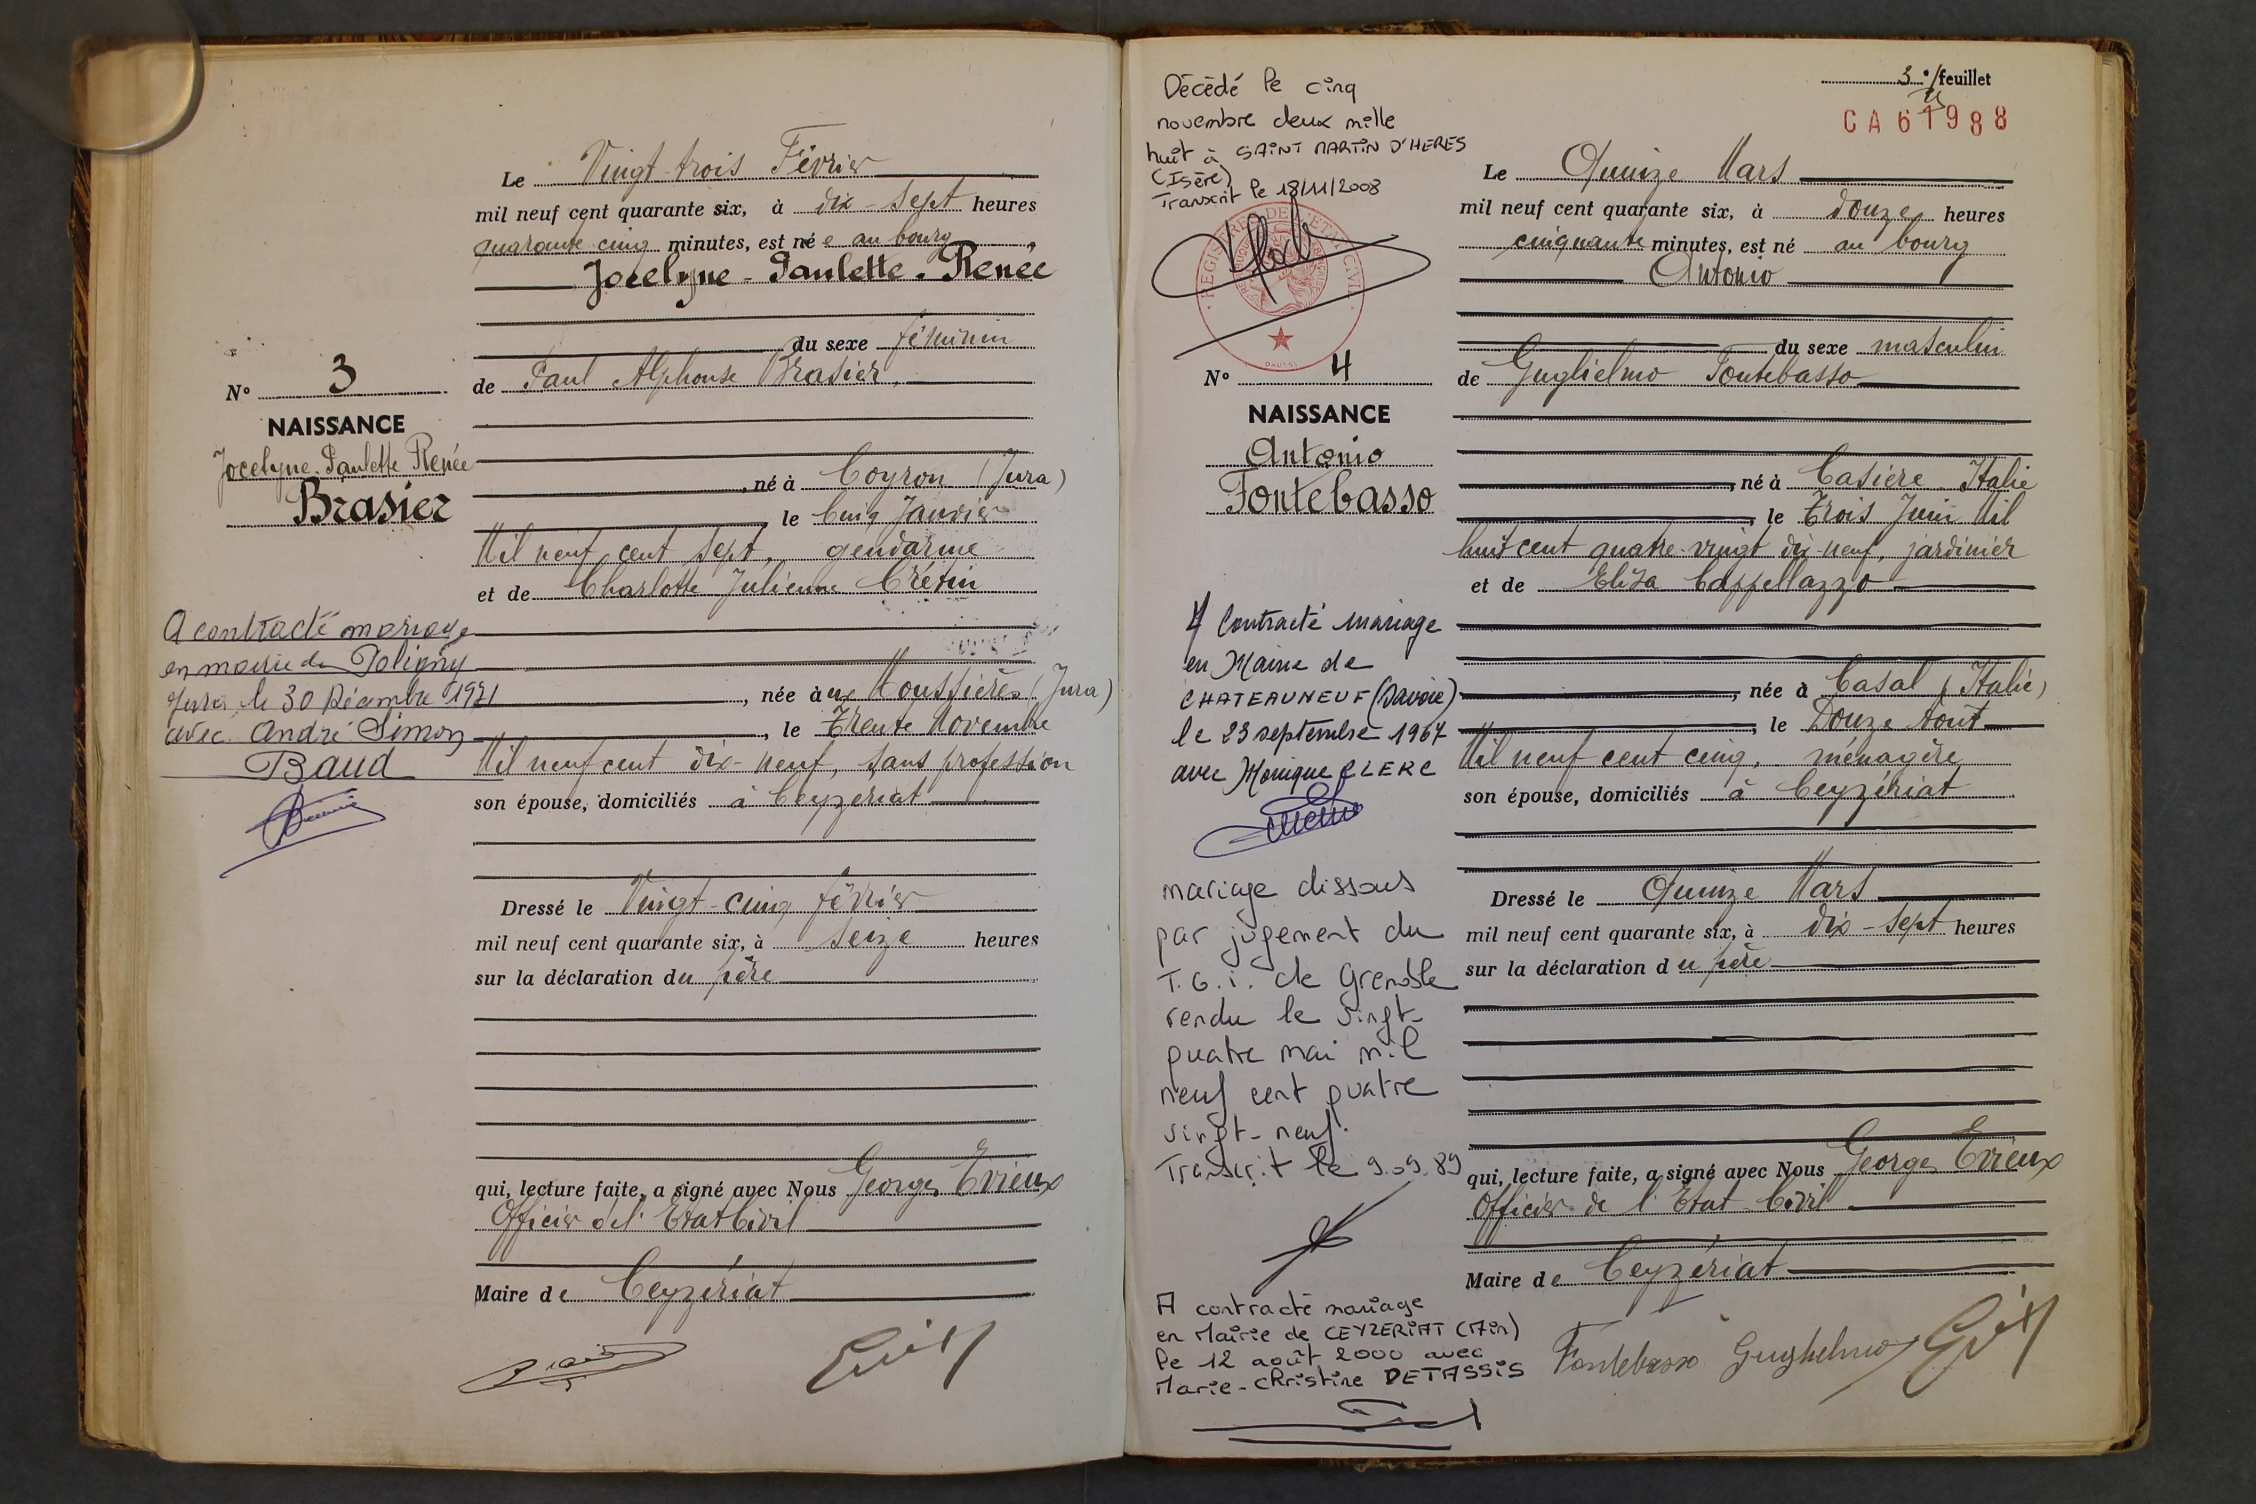 Le Vingt-trois Février
mil neuf cent quarante six, à dix-sept heures
quarante cinq minutes, est née au bourg
Jocelyne-Paulette-Renée
du sexe féminin
N° 3
de Paul Alphonse Brasier,
NAISSANCE
Jocelyne-Paulette Renée
Brasier
, né à Coyron (Jura)
, le Cinq Janvier
Mil neuf cent sept, gendarme
et de Charlotte Julienne Crétin
A contracté mariage
en mairie de Poligny
Jura, le 30 Décembre 1971
avec André Simon
Baud
, née aux Moussières (Jura)
, le Trente Novembre
Mil neuf cent dix-neuf, sans profession
son épouse, domiciliés à Ceyzériat
Dressé le Vingt-cinq février
mil neuf cent quarante six, à seize heures
sur la déclaration du père
qui, lecture faite, a signé avec Nous Georges Evieux
Officier de l'Etat Civil
Maire de Ceyzériat
3e feuillet
CA61988
Décédé le cinq
novembre deux mille
huit à SAINT MARTIN D'HERES
(Isère)
Transcrit le 18/11/2008
REGISTRES DE L'ETAT CIVIL
Le Quinze Mars
mil neuf cent quarante six, à douze heures
cinquante minutes, est né au bourg
Antonio
du sexe masculin
N° 4
de Guglielmo Fontebasso
NAISSANCE
Antonio
Fontebasso
, né à Casiere Italie
, le Trois Juin Mil
huit cent quatre-vingt dix-neuf, jardinier
et de Eliza Cappellazzo
A Contracté mariage
en Mairie de
CHATEAUNEUF (Savoie)
le 23 septembre 1967
avec Monique CLERC
, née à Casal (Italie)
, le Douze Août
Mil neuf cent cinq, ménagère
son épouse, domiciliés à Ceyzériat
mariage dissous
par jugement du
T.G.i. de Grenoble
rendu le vingt-
quatre mai mil
neuf cent quatre
vingt-neuf.
Transcrit le 9.09.89
Dressé le Quinze Mars
mil neuf cent quarante six, à dix-sept heures
sur la déclaration du père
qui, lecture faite, a signé avec Nous Georges Evieux
Officier de l'Etat Civil
Maire de Ceyzériat
A contracté mariage
en Mairie de CEYZERIAT (Ain)
le 12 août 2000 avec
Marie-Christine DETASSIS
Fontebasso Guglielmo